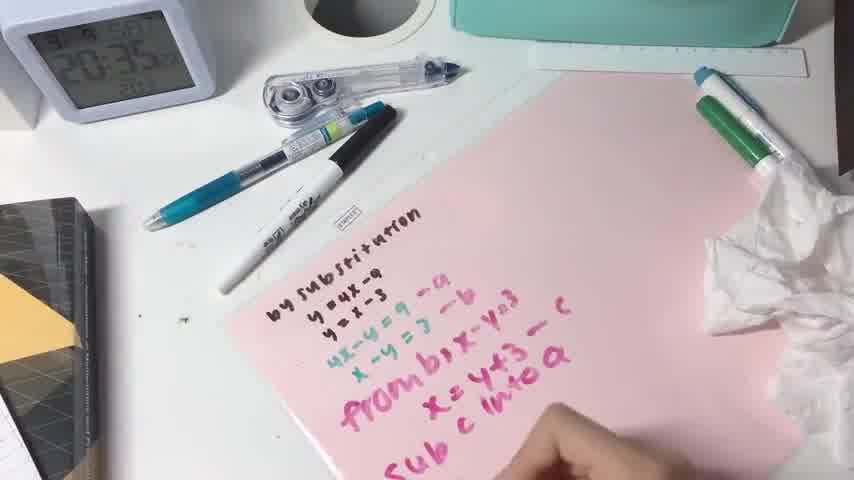 20:35
by substitution
y = 4x - 9
y = x - 3
4x - y = 9 - a
x - y = 3 - b
from b, x - y = 3
x = y + 3 - c
sub c into a